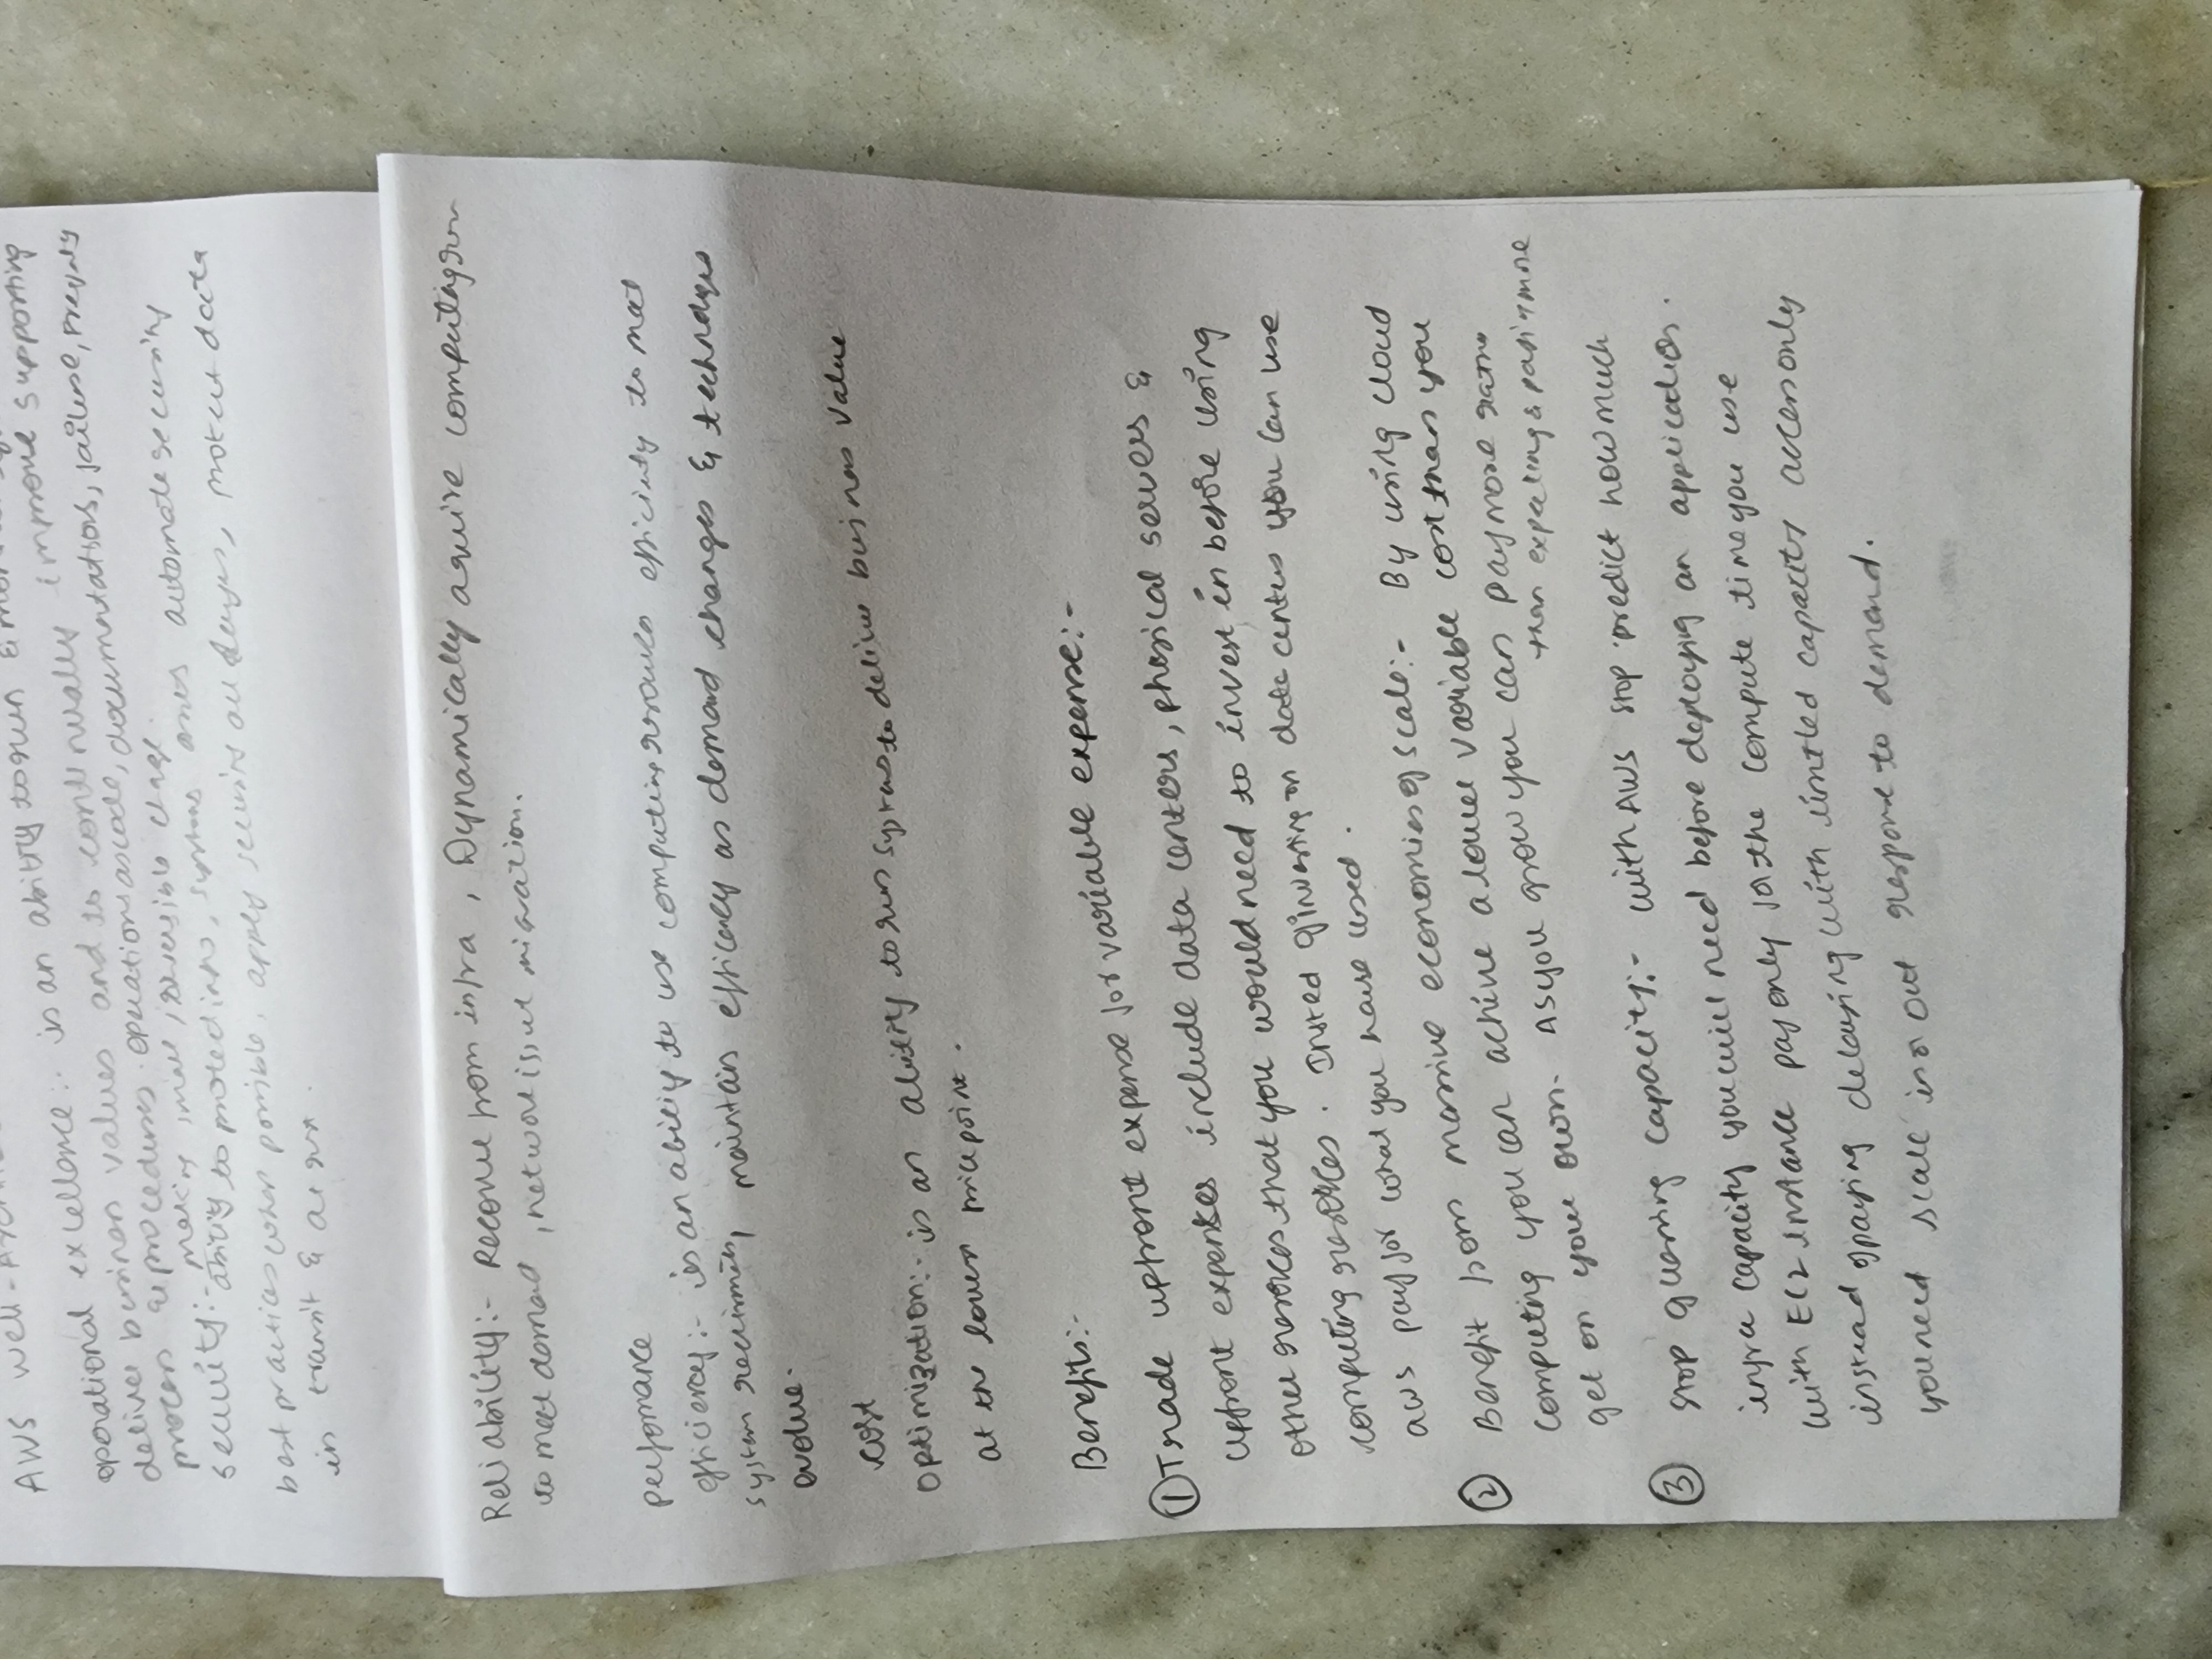 AWS Well-Archi
operational excellence:- is an ability to run & mon
deliver business values and to continually improve supporting
process & procedures. operations as code, documentations, failure,
making small, reversible chage.
Security:- ability to protect info, systems assets automate securing
best practices when possible, apply security all layers, protect data
in transit & at rest.
Reliability:- Recover from infra, Dynamically aquire computing
to meet demand, network issue migration.
Perfomance
efficiency:- is an ability to use computing resources efficiently to meet
system, maintain efficacy as demand changes & technologies
evolve.
cost
optimization:- is an ability to run systems to deliver business value
at the lowest price point.
Benefits:-
① Trade upfront expense for variable expense:-
upfront expenses include data centers, physical servers &
other that you would need to invest in before using
computing. Insted of investing on data centers you can use
aws pay for what you have used.
② Benefit from massive economies of scale:- By using cloud
computing you can achive a lower variable cost than you
get on your own. As you grow you can pay more rather
than expecting & paying more
③ Stop guessing capacity:- with AWS stop predict how much
infra capacity you will need before deploying an application.
with EC2 instance pay only for the compute time you use
instead of paying with capacity access only
you need scale in or out response to demand.